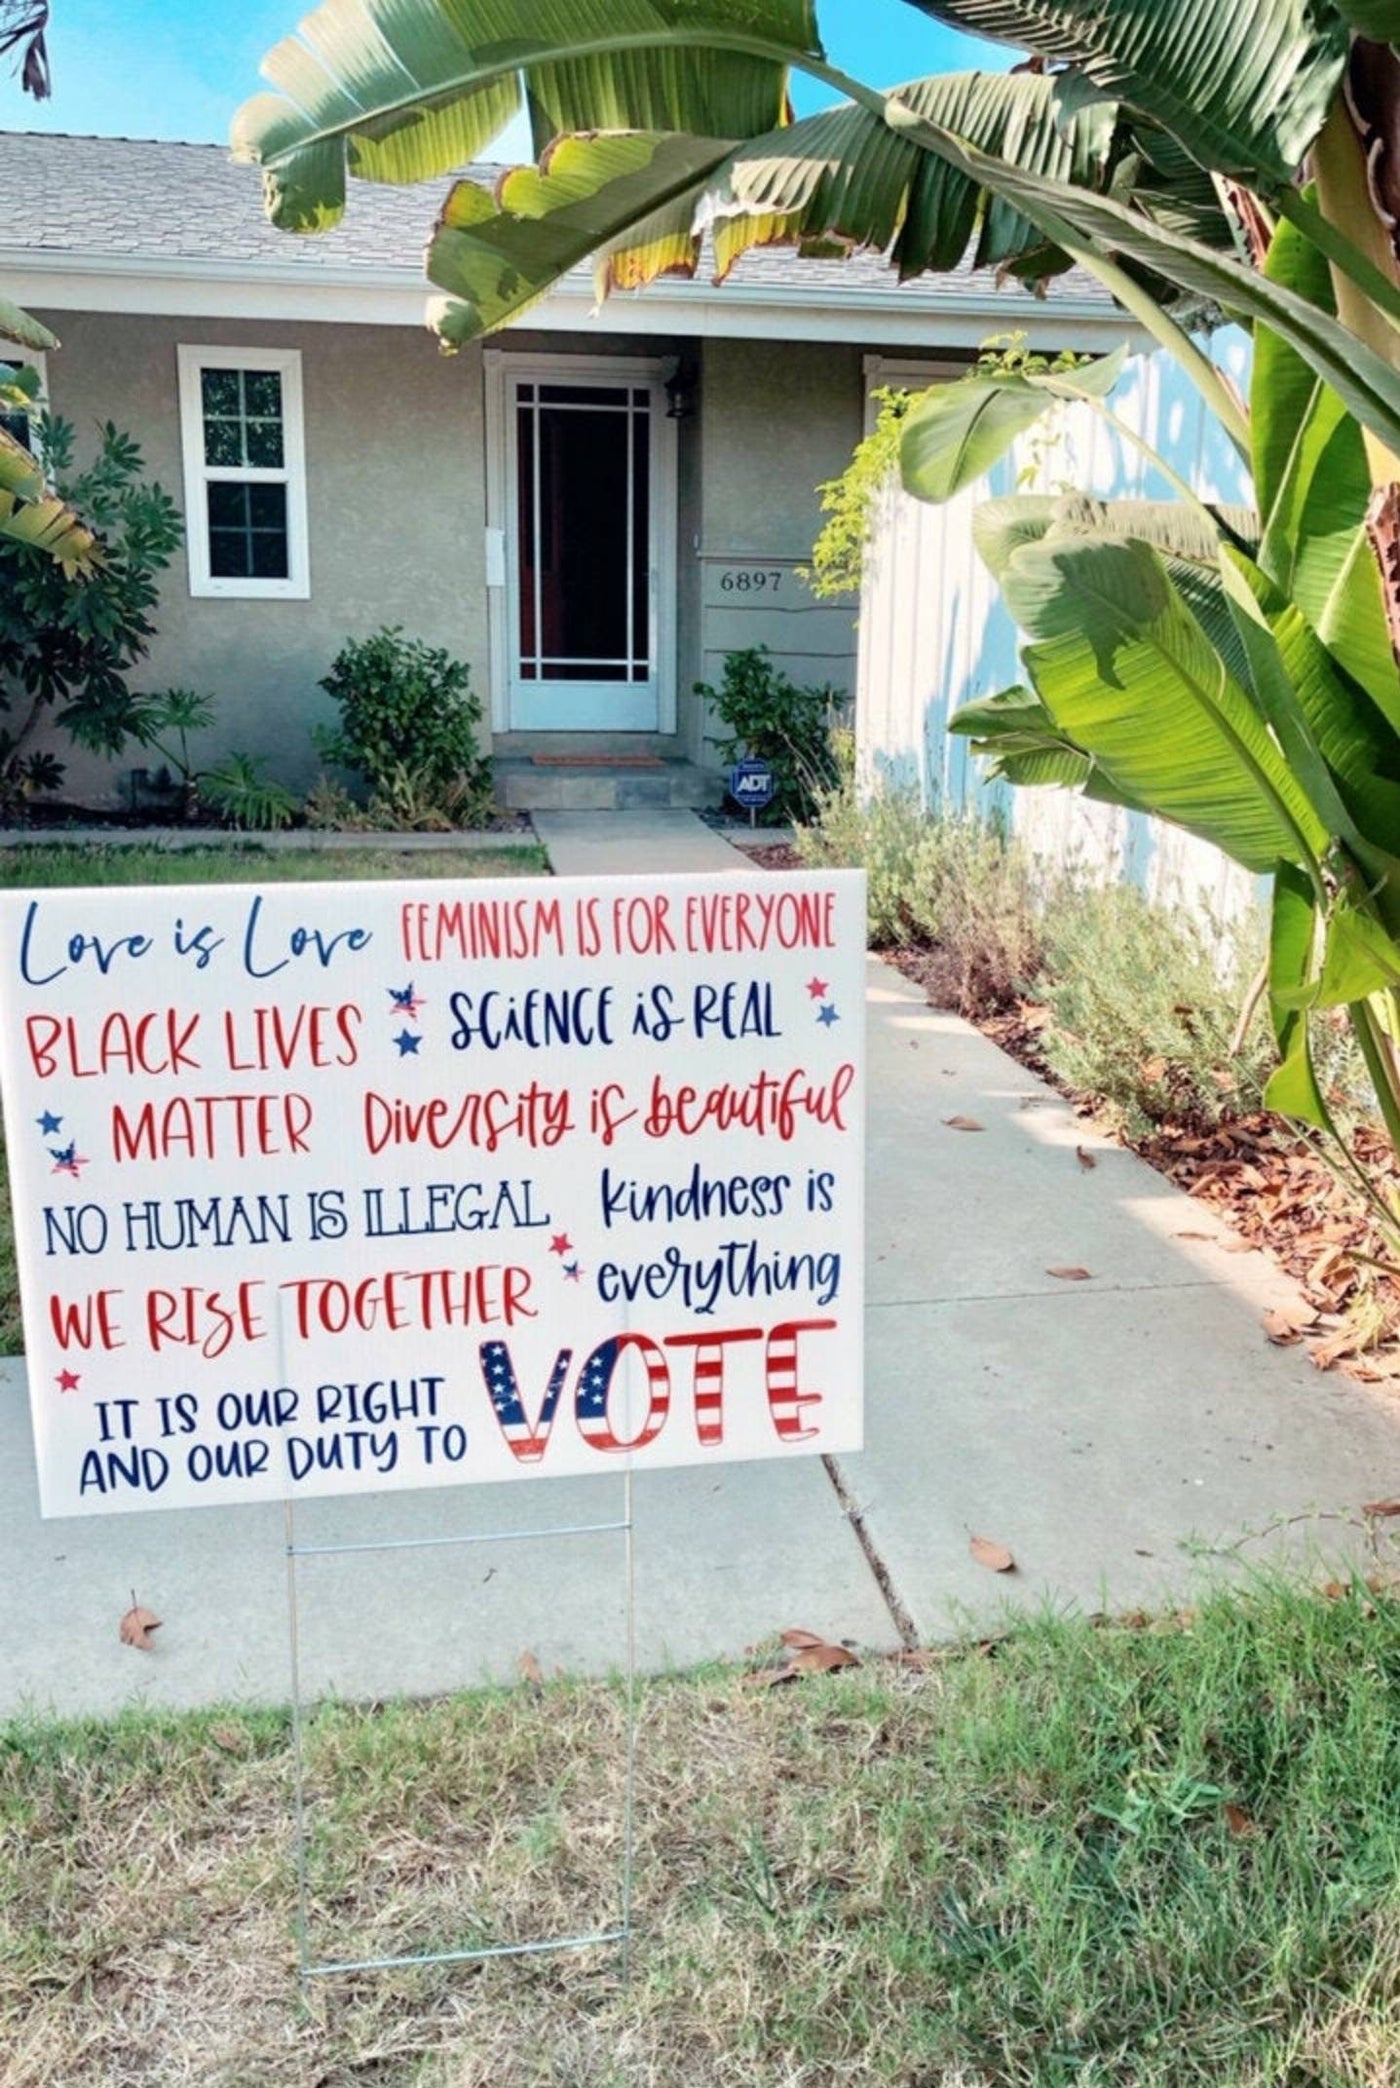 6897
ADT
Love is Love FEMINISM IS FOR EVERYONE
BLACK LIVES SCiENCE iS REAL
MATTER Diversity is beautiful
NO HUMAN IS ILLEGAL kindness is
WE RISE TOGETHER everything
IT IS OUR RIGHT
AND OUR DUTY TO VOTE